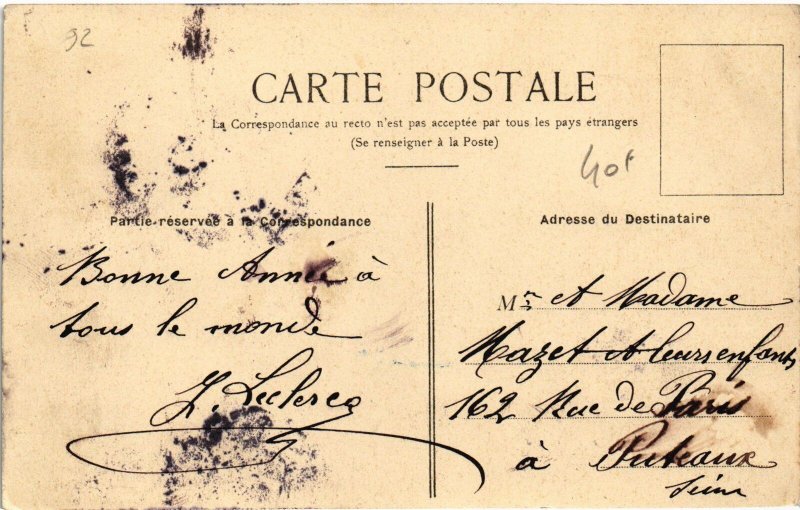 92
CARTE POSTALE
La Correspondance au recto n'est pas acceptée par tous les pays étrangers
(Se renseigner à la Poste)
40f
Partie réservée à la Correspondance
Bonne Année à
tous le monde
Leclercq
Adresse du Destinataire
Mr et Madame
Mazet et leurs enfants
162 Rue de Paris
à Puteaux
Seine